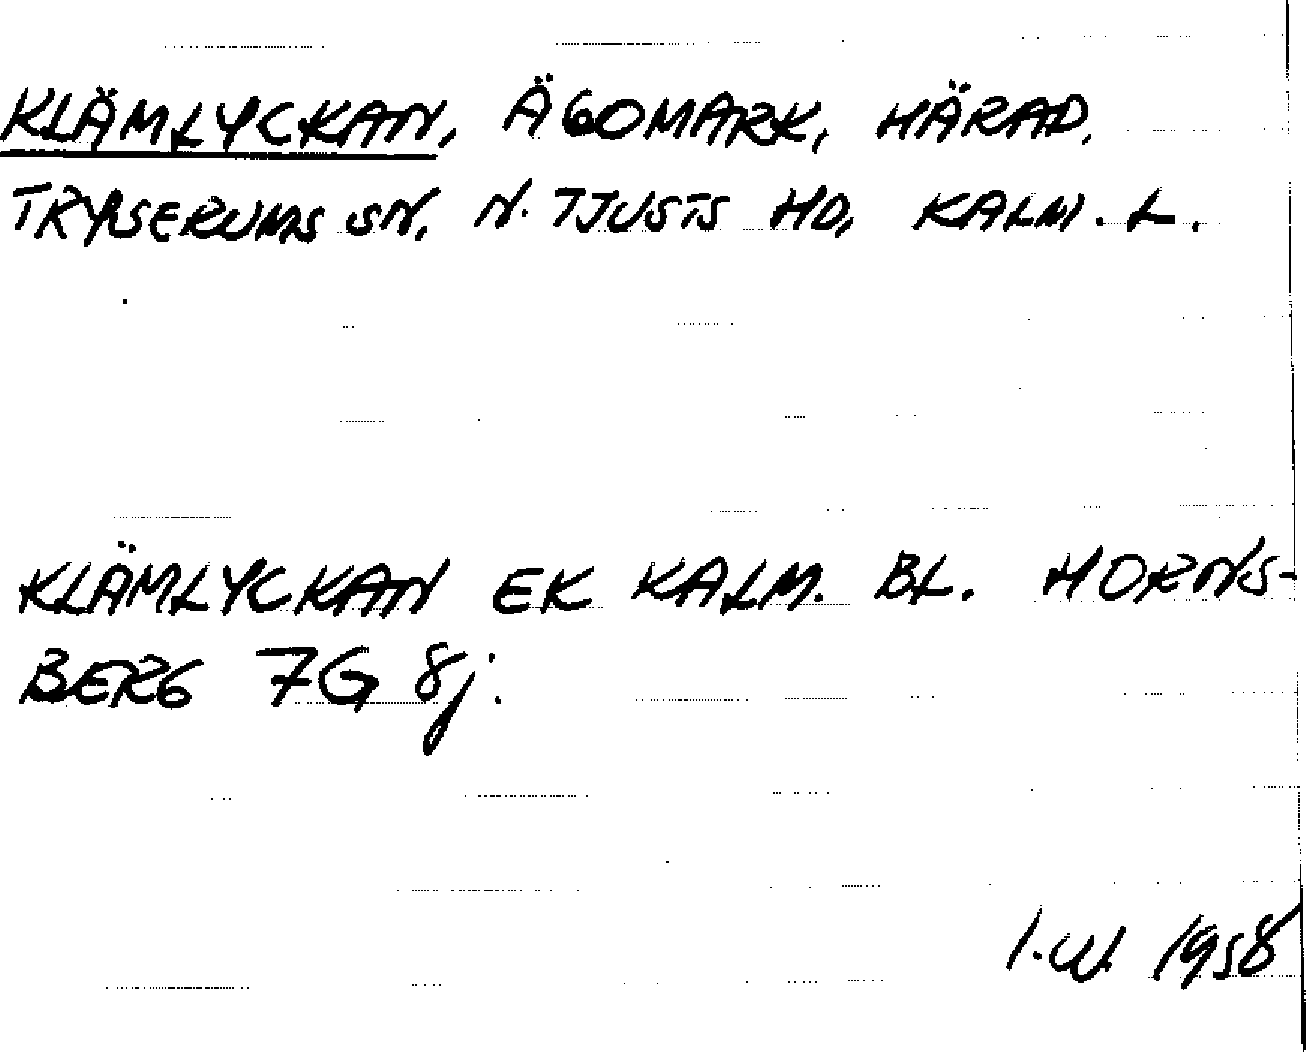 KLÄMLYCKAN, ÄGOMARK, HÄRAD,
TRYSERUMS SN, N. TJUSTS HD, KALM. L.
KLÄMLYCKAN EK KALM. BL. HORNS-
BERG 7G 8j.
I.W. 1958